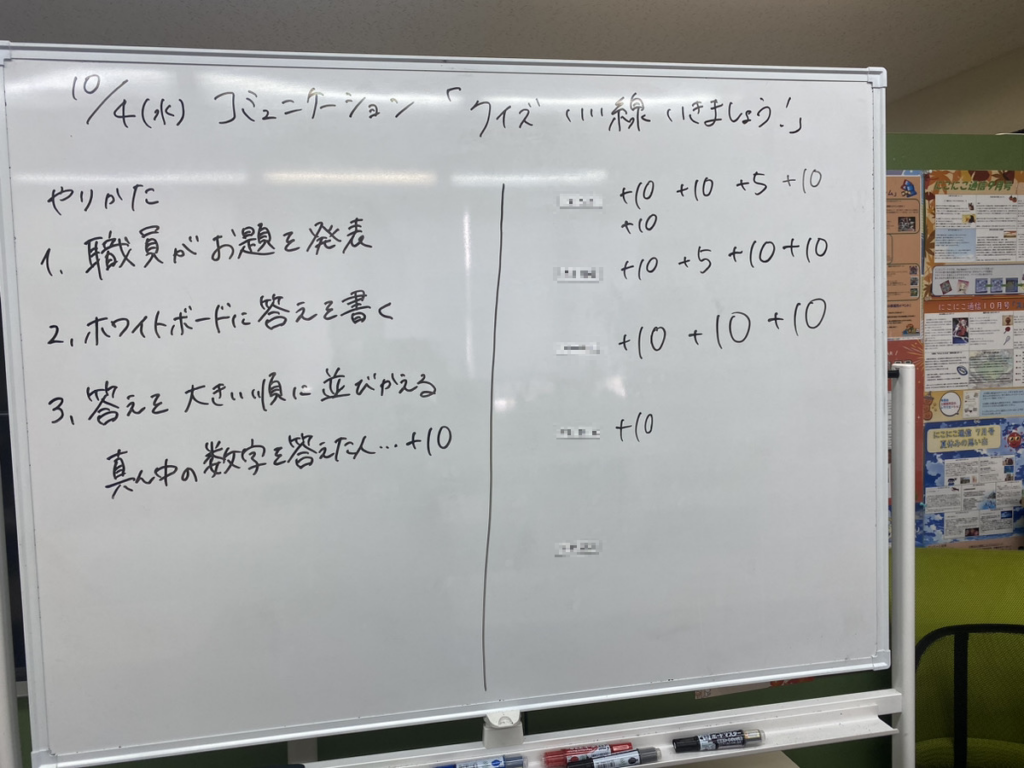 10/4(水) コミュニケーション 「クイズ いい線いきましょう!」
やりかた
1. 職員がお題を発表
2. ホワイトボードに答えを書く
3. 答えを大きい順に並びかえる
真ん中の数字を答えた人…+10
+10 +10 +5 +10
+10
+10 +5 +10 +10
+10 +10 +10
+10
にこにこ通信9月号
にこにこ通信10月号
にこにこ通信 7月号
夏休みの思い出